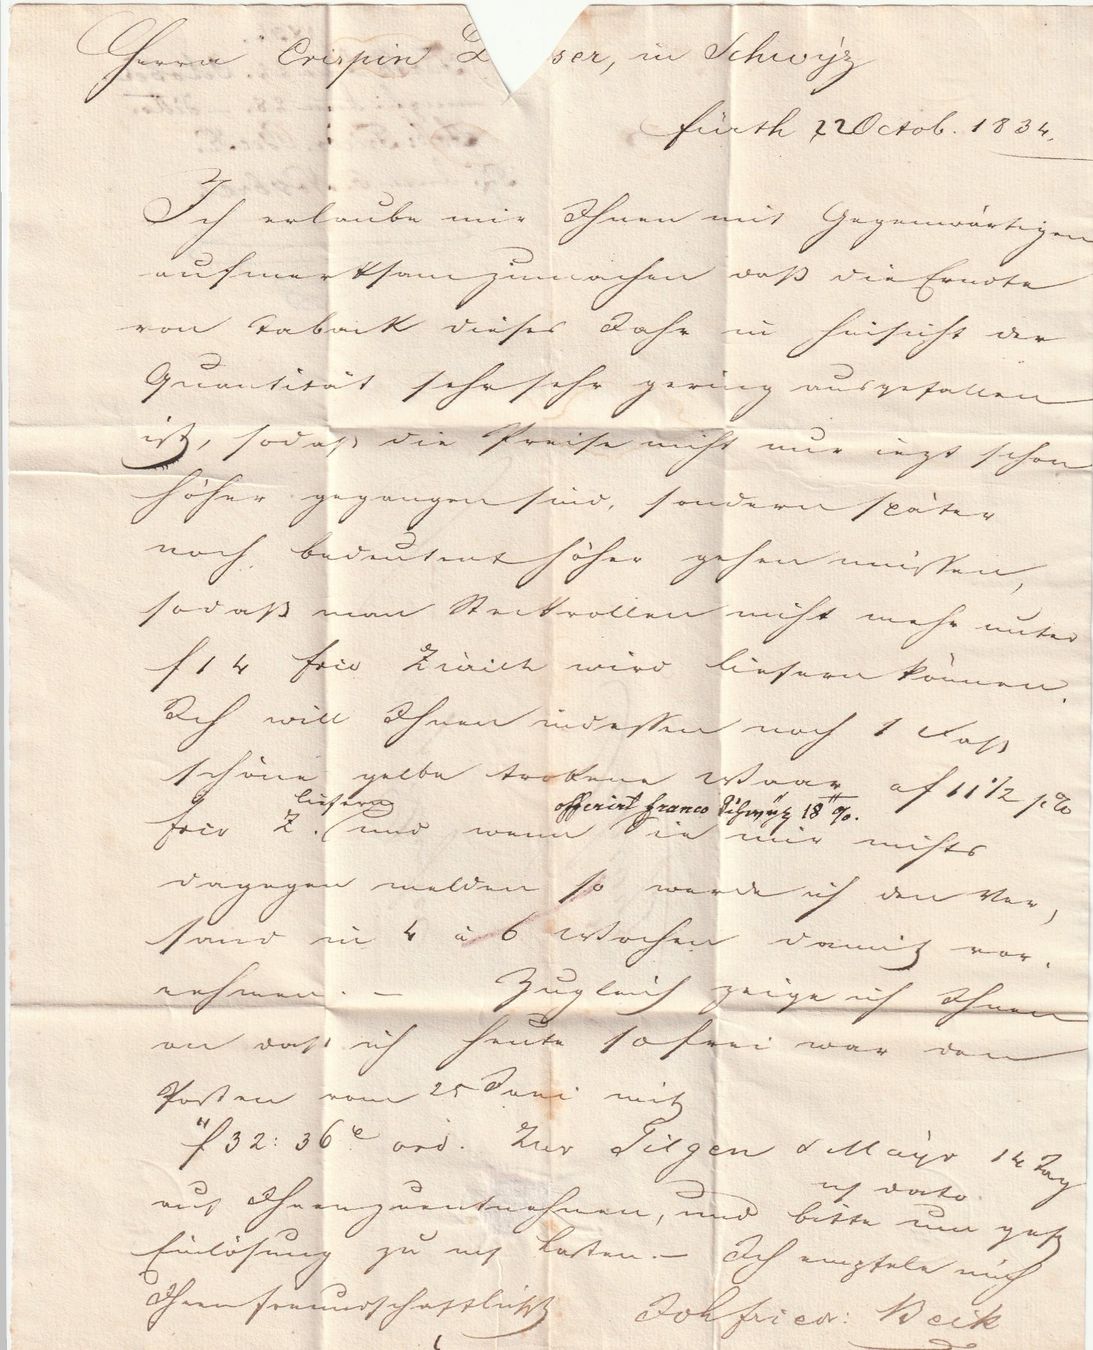 Herrn Crispin ser, in Schwÿz
fürth 22 Octob. 1834.
Ich erlaube mir Ihnen mit Gegenwärtigen
aufmerksam zumachen daß die Erndte
von Taback dieses Jahr in hinsicht der
Quantität sehr sehr gering ausgefallen
ist, sodaß die Preise nicht nur iezt schon
höher gegangen sind, sondern später
noch bedeutent höher gehen müssen,
sodaß man Rollen nicht mehr unter
f 14 frco Zürich wird liefern können.
Ich will Ihnen indessen noch 1 Faß
schöne gelbe trokene Waar af 11 1/2 p%
liefern offerirt franco Schwÿz 18 %.
frco Z. und wenn Sie mir nichts
dagegen melden so werde ich den Ver,
sand in 4 à 6 Wochen damit vor.
nehmen. – Zugleich zeige ich Ihnen
an daß ich heute so frei war den
Posten vom 25 Juni mit
f 32: 36 ord. Tilgen d Mayr 14 Tag
dato
auf Ihnen zuentnehmen, und bitte um gefl
Einlösung zu Lasten. – Ich empfele mich
Ihnen freundschaftlichst Joh fried: Beik